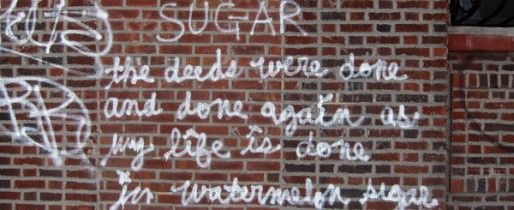 SUGAR
the deeds were done
and done again as
my life is done
in watermelon sugar